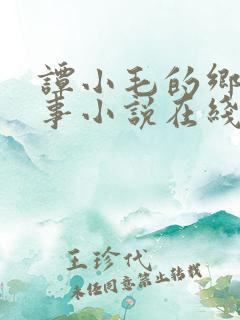 譚小毛的鄉
事小說在綫
王珍代
未经同意禁止转载